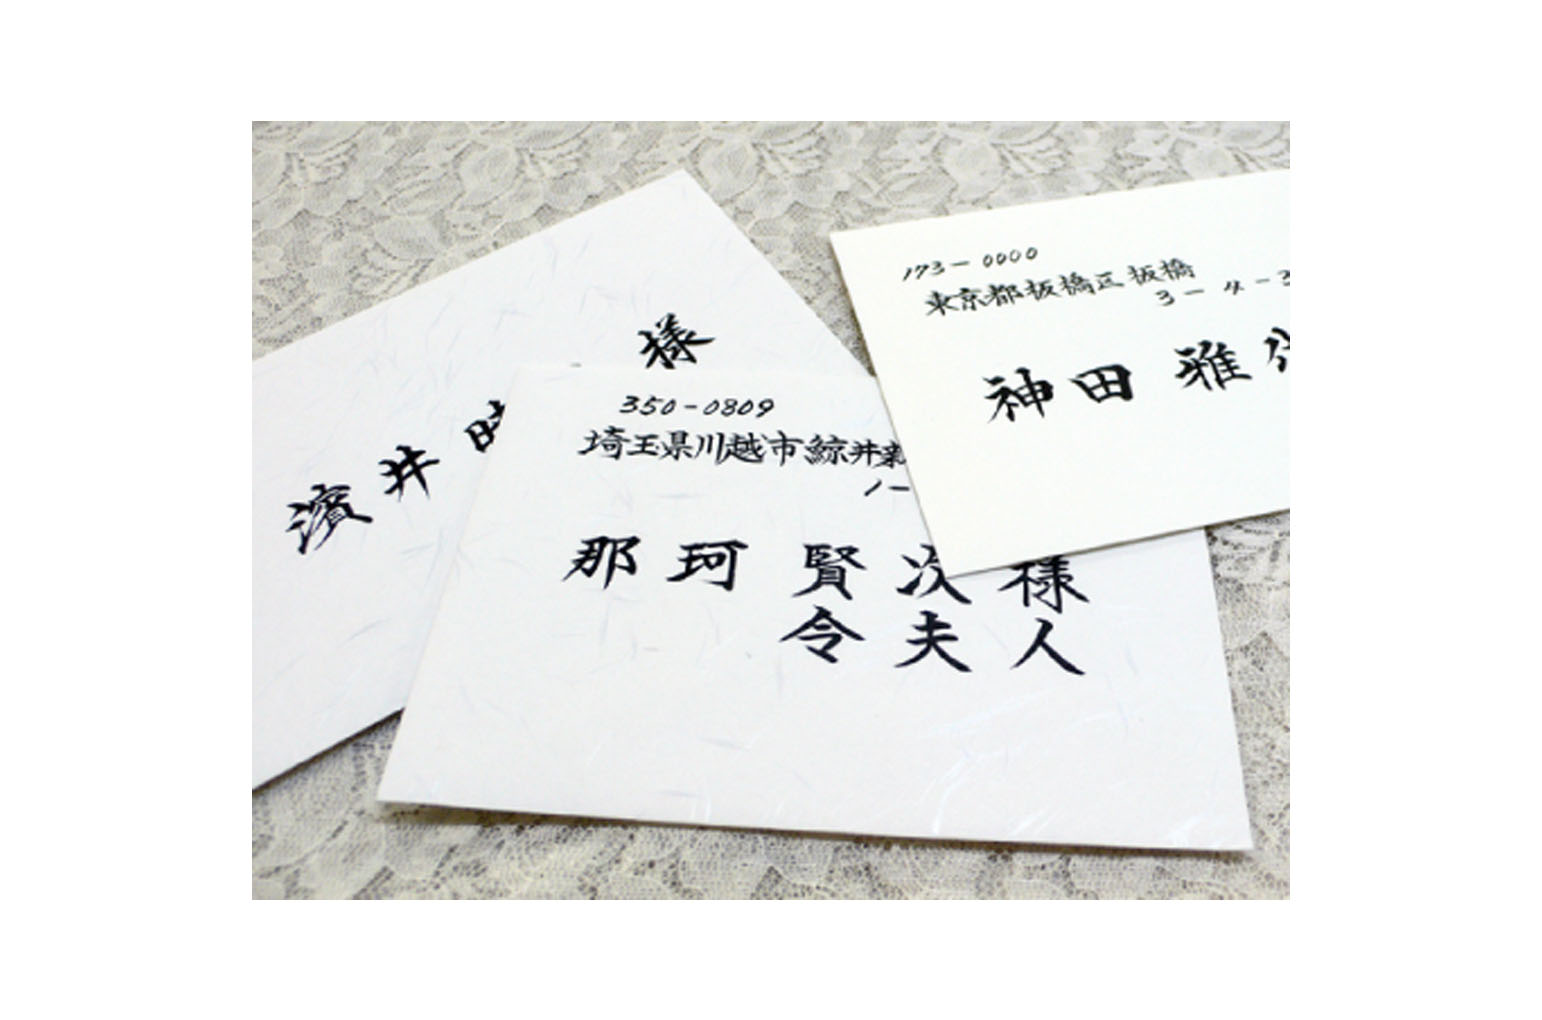 濱井 時 様
350-0809
埼玉県川越市鯨井新
1-
那珂 賢次様
令夫人
173-0000
東京都板橋区板橋
3-4-3
神田 雅